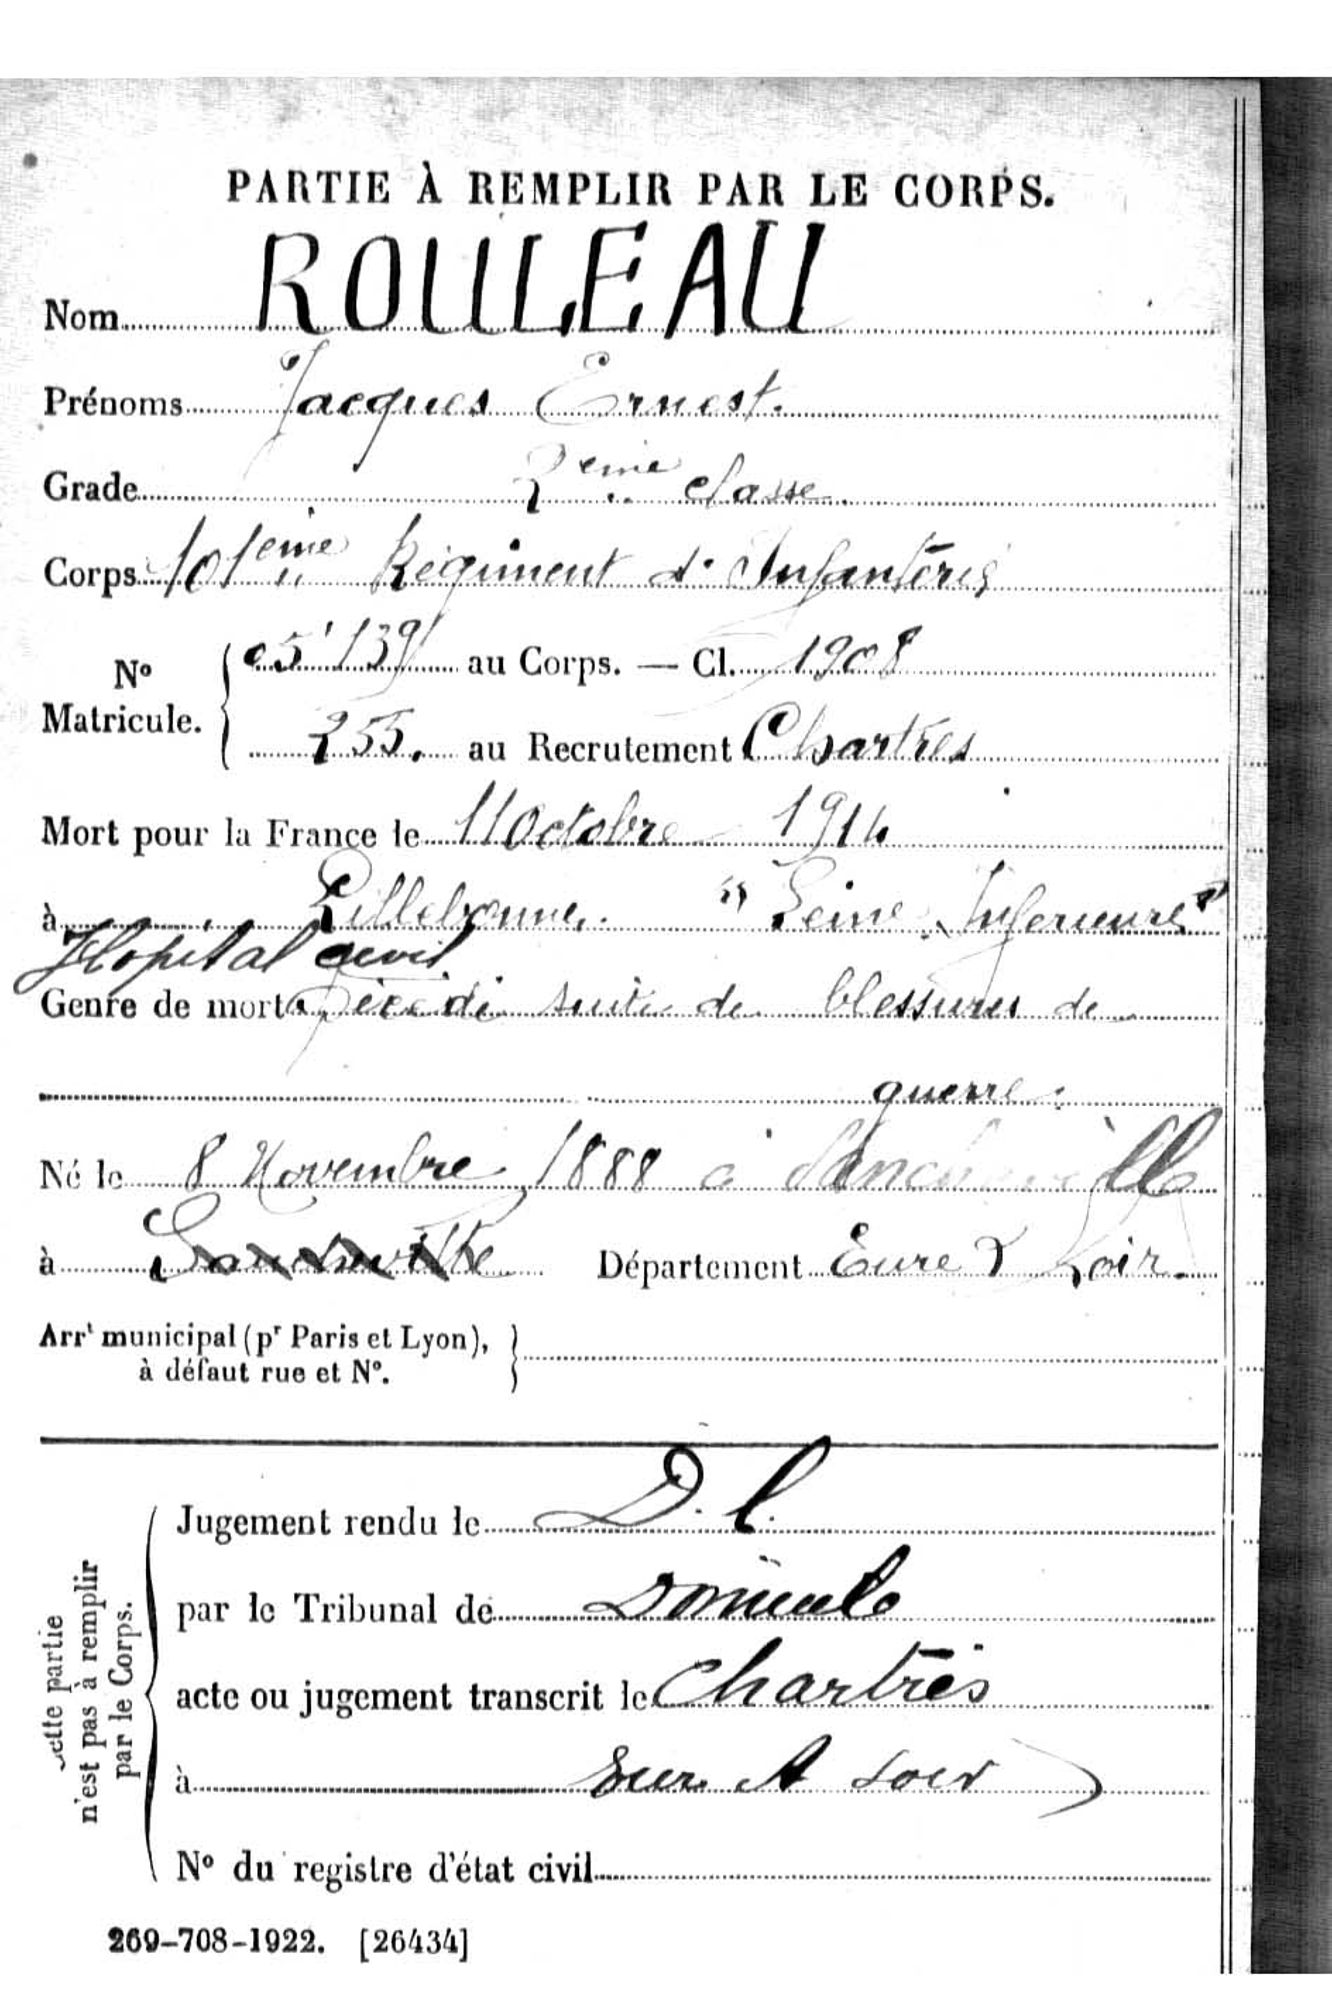 PARTIE À REMPLIR PAR LE CORPS.
Nom ROULEAU
Prénoms Jacques Ernest.
Grade 2ème classe.
Corps 101ème Régiment d'Infanterie
No Matricule. { 05139 au Corps. — Cl. 1908
255. au Recrutement Chartres
Mort pour la France le 11 Octobre 1914
à Lillebonne. "Seine Inferieure"
Hopital civil
Genre de mort Décédé suite de blessures de
guerre.
Né le 8 Novembre 1888 à Sancheville
à Département Eure & Loir.
Arrt municipal (pr Paris et Lyon), }
à défaut rue et No.
Cette partie
n'est pas à remplir
par le Corps.
Jugement rendu le D. C.
par le Tribunal de Domicile
acte ou jugement transcrit le Chartres
à Eure et Loir
No du registre d'état civil
269-708-1922. [26434]